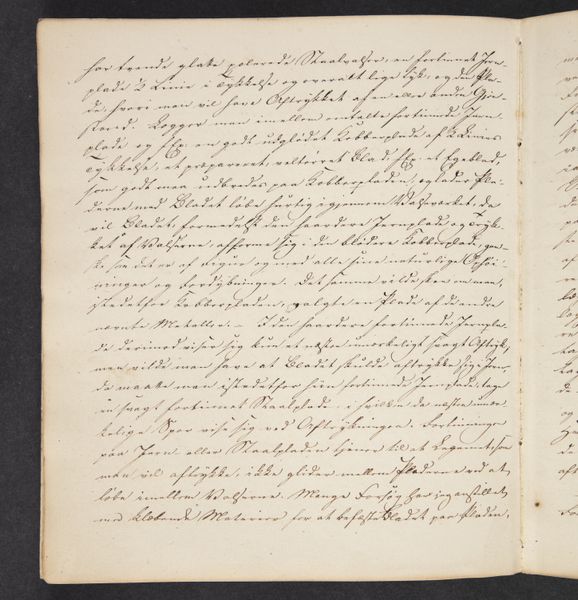 har tvende glatte polerede Staalvalser, en fortinnet Jern-
plade ½ Linie i Tykkelse og overalt lige tyk, og den Pla-
de, hvori man vil have Aftrykket af en eller anden Gjen-
stand. Lægger man imellem omtalte fortinnede Jern-
plade og f. Ex: en godt udglødet Kobberplade af ½ Linies
Tykkelse, et præpareret, veltørret Blad, f. Ex: et Egeblad,
som godt maa udbredes paa Kobberpladen, og lader Pla-
derne med Bladet løbe hurtig igjennem Valseværket, da
vil Bladet, formedelst den haardere Jernplade og Tryk-
ket af Valserne, afforme sig i den blødere Kobberplade, gan-
ske som det er af Figur og med alle sine naturlige Ophøi-
ninger og Fordybninger. Det samme vilde skee om man,
istedetfor Kobberpladen, valgte en Plade af de andre
nævnte Metaller. – I den haardere fortinnede Jernpla-
de derimod viser sig kun et næsten umærkeligt svagt Aftryk,
men vilde man have at Bladet skulde aftrykke sig i Jern,
da maatte man istedetfor hiin fortinnede Jernplade, tage
en svagt fortinnet Staalplade, i hvilken da næsten umær-
kelige Spor vise sig ved Aftrykningen. Fortinningen
paa Jern- eller Staalpladen tjener til at Legemet, som
man vil aftrykke, ikke glider mellem Pladerne ved at
løbe imellem Valserne. Mange Forsøg har jeg anstillet
med klæbende Materier for at befæste Bladet paa Pladen,